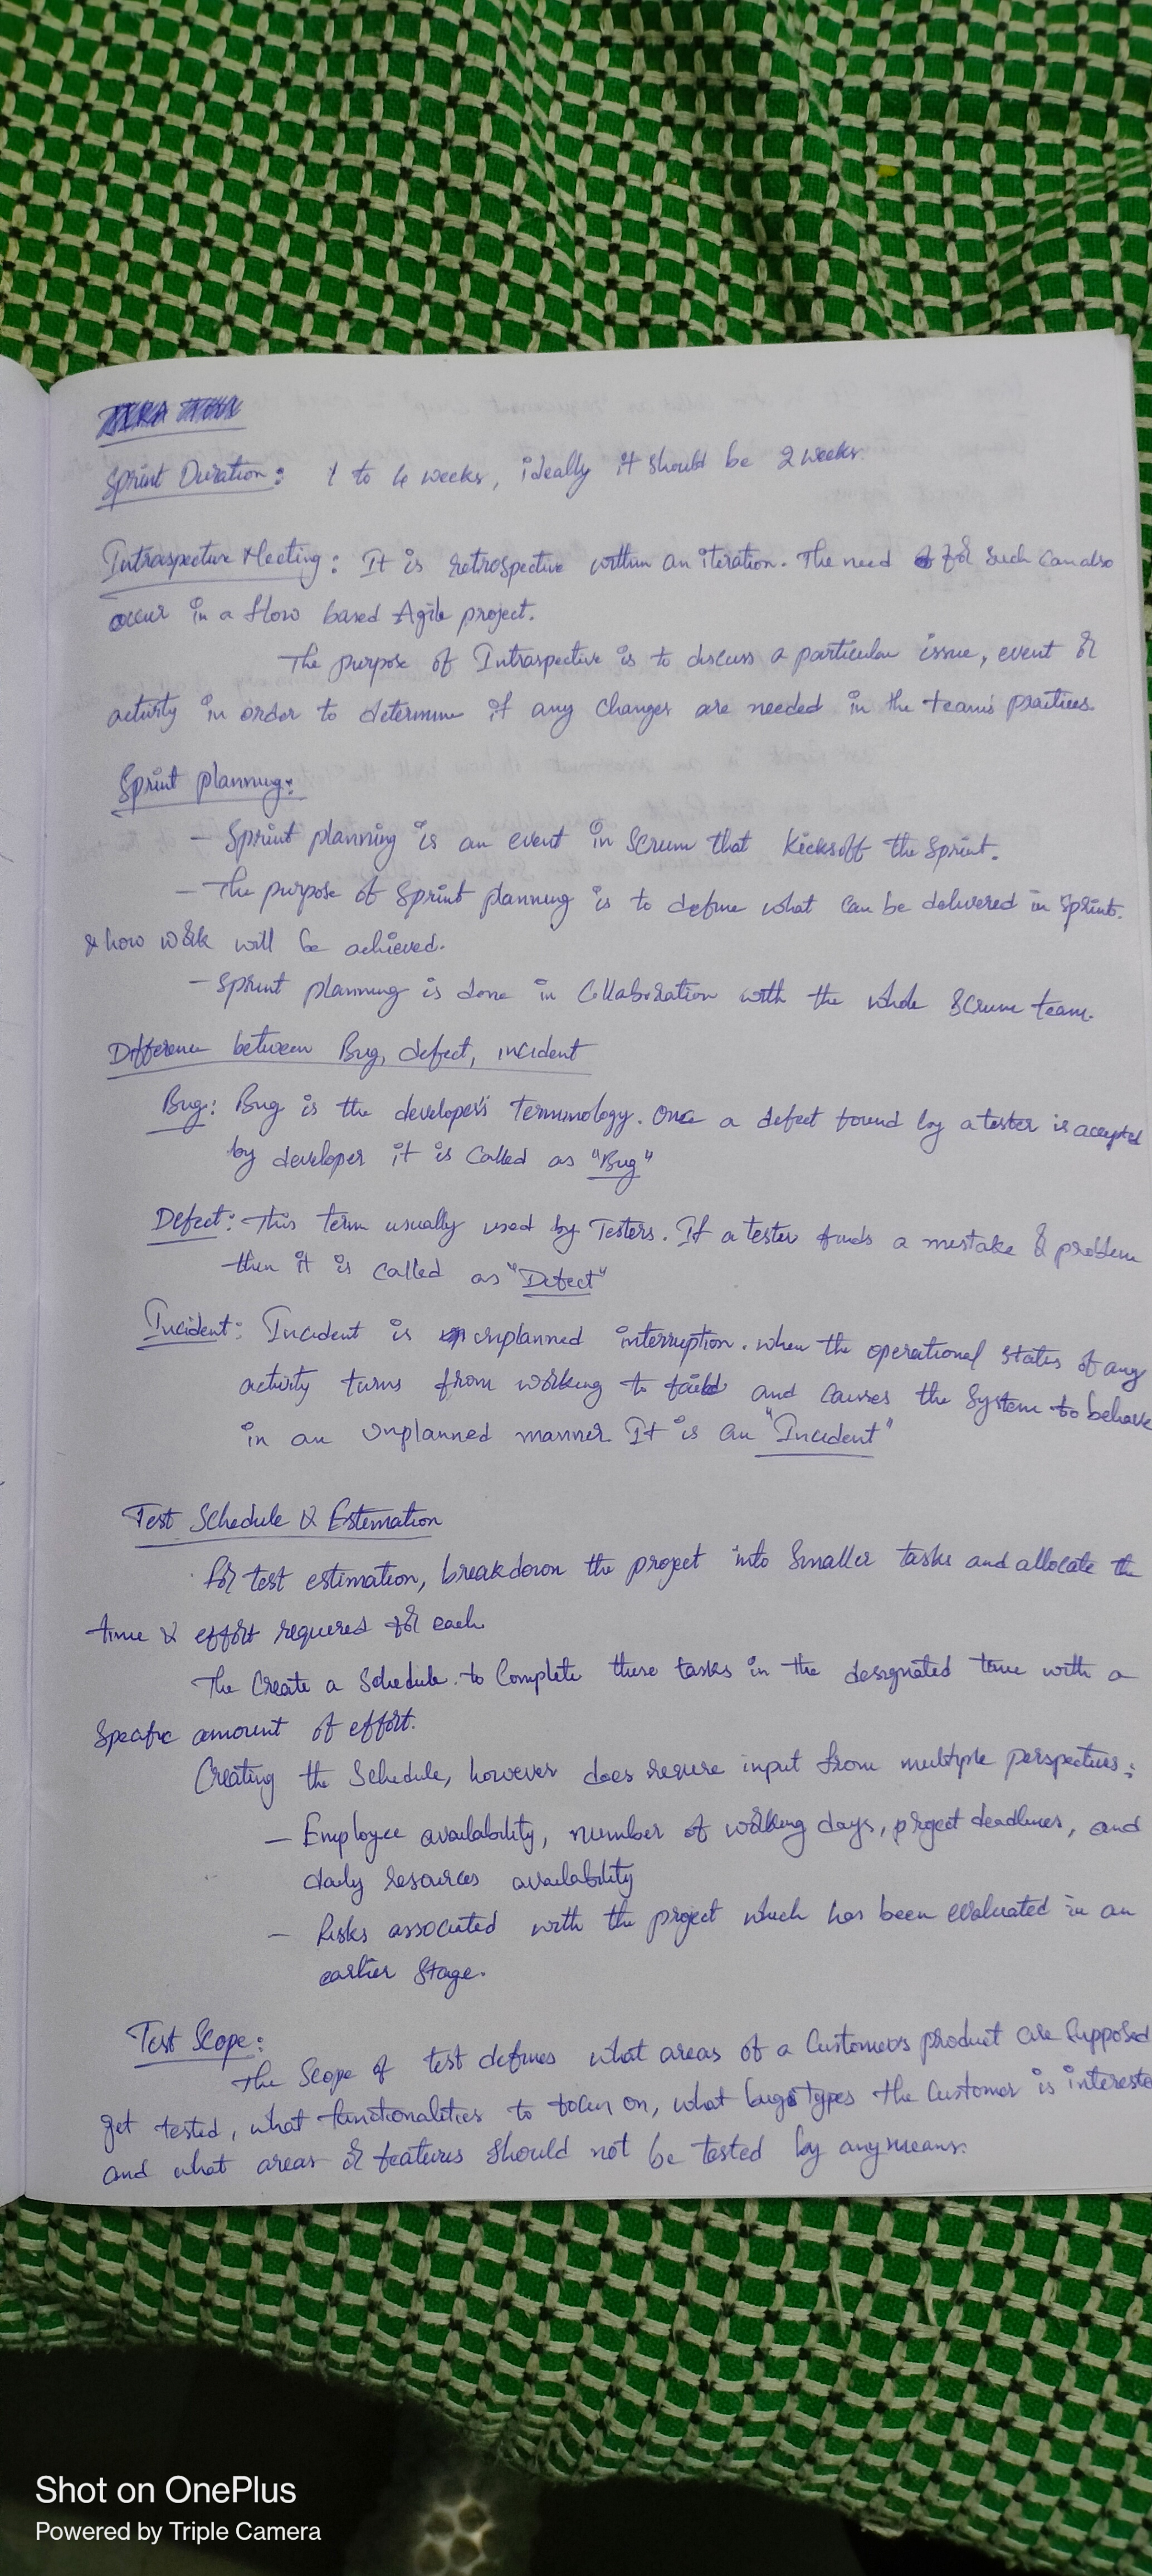 Sprint Duration: 1 to 4 weeks, ideally it should be 2 weeks.
Intraspective Meeting: It is retrospective within an iteration. The need for such can also
occur in a flow based Agile project.
The purpose of Intraspective is to discuss a particular issue, event or
activity in order to determine if any changes are needed in the team's practices.
Sprint planning:
- Sprint planning is an event in Scrum that kicksoff the Sprint.
- The purpose of Sprint planning is to define what can be delivered in Sprint.
& how work will be achieved.
- Sprint planning is done in Collaboration with the whole Scrum team.
Difference between Bug, defect, incident
Bug: Bug is the developer's Terminology. Once a defect found by a tester is accepted
by developer it is called as "Bug"
Defect: This term usually used by Testers. If a tester finds a mistake or problem
then it is called as "Defect"
Incident: Incident is unplanned interruption. when the operational status of any
activity turns from working to failed and causes the System to behave
in an unplanned manner It is an "Incident"
Test Schedule & Estimation
For test estimation, breakdown the project into Smaller tasks and allocate the
time & effort required for each
The Create a Schedule. to Complete these tasks in the designated time with a
Specific amount of effort.
Creating the Schedule, however does require input from multiple perspectives:
- Employee availability, number of working days, project deadlines, and
daily resources availability
- Risks associated with the project which has been evaluated in an
earlier Stage.
Test Scope:
The Scope of test defines what areas of a Customers product are Supposed
get tested, what functionalities to focus on, what bugs types the Customer is intereste
and what areas or features should not be tested by any means.
Shot on OnePlus
Powered by Triple Camera